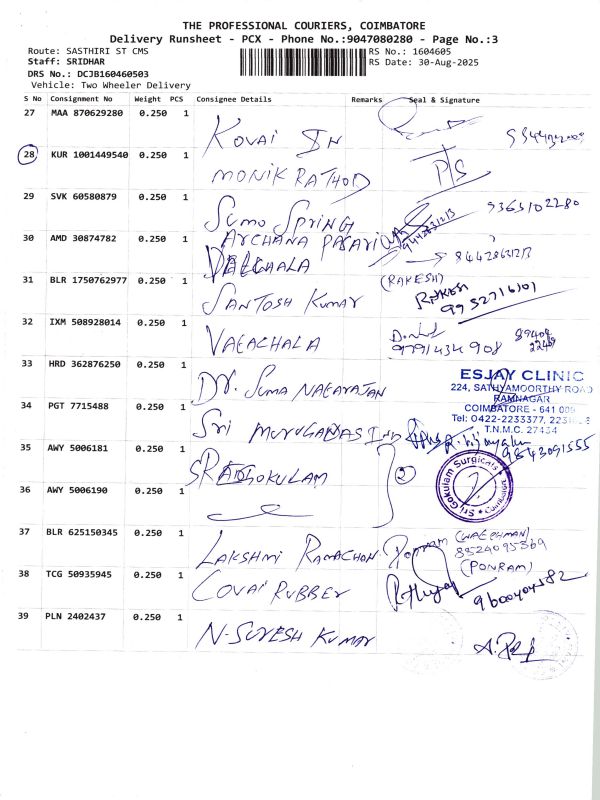 THE PROFESSIONAL COURIERS, COIMBATORE
Delivery Runsheet - PCX - Phone No.:9047080280 - Page No.:3
Route: SASTHIRI ST CMS
RS No.: 1604605
Staff: SRIDHAR
RS Date: 30-Aug-2025
DRS No.: DCJB160460503
Vehicle: Two Wheeler Delivery
S No Consignment No Weight PCS Consignee Details Remarks Seal & Signature
27 MAA 870629280 0.250 1 KOVAI IN
28 KUR 1001449540 0.250 1 MONIK RATHOD
29 SVK 60580879 0.250 1 SUMO SPRING 9363102280
30 AMD 30874782 0.250 1 ARCHANA PASARI
8442863213
31 BLR 1750762977 0.250 1 SANTOSH KUMAR (RAKESH) RAKESH
9952716101
32 IXM 508928014 0.250 1 VAEACHALA
9791434908
33 HRD 362876250 0.250 1 DR. SUMA NATARAJAN
ESJAY CLINIC
224, SATHYAMOORTHY ROAD
RAMNAGAR
COIMBATORE - 641 009
Tel: 0422-2233377,
T.N.M.C. 27434
34 PGT 7715488 0.250 1 Sri MURUGANDAS IND
9843091555
35 AWY 5006181 0.250 1 SRI GOKULAM 2
Sri Gokulam Surgicals
Coimbatore
36 AWY 5006190 0.250 1
37 BLR 625150345 0.250 1 LAKSHMI RAMACHON. Ponram (WATCHMAN)
8524095369
(PONRAM)
38 TCG 50935945 0.250 1 COVAI RUBBER
9600404582
39 PLN 2402437 0.250 1 N-SURESH KUMAR